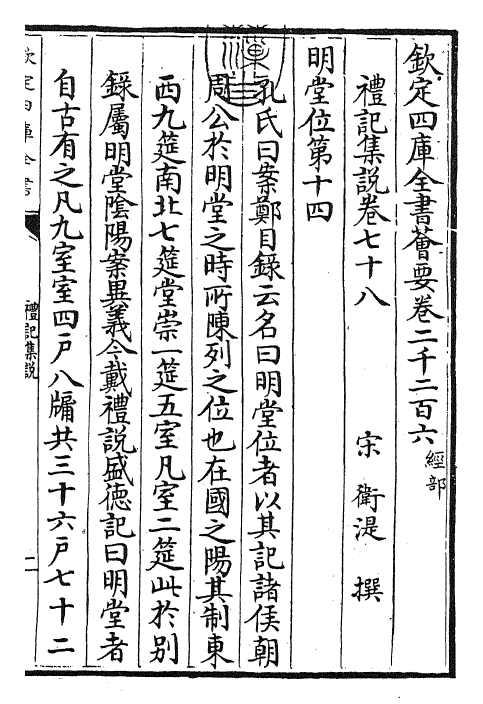 欽定四庫全書薈要卷二千二百六 經部
禮記集説卷七十八
宋 衛湜 撰
明堂位第十四
孔氏曰案鄭目録云名曰明堂位者以其記諸侯朝
周公於明堂之時所陳列之位也在國之陽其制東
西九筵南北七筵堂崇一筵五室凡室二筵此於别
録屬明堂隂陽案異義今戴禮説盛徳記曰明堂者
自古有之凡九室室四戸八牖共三十六戸七十二
欽定四庫全書
禮記集説